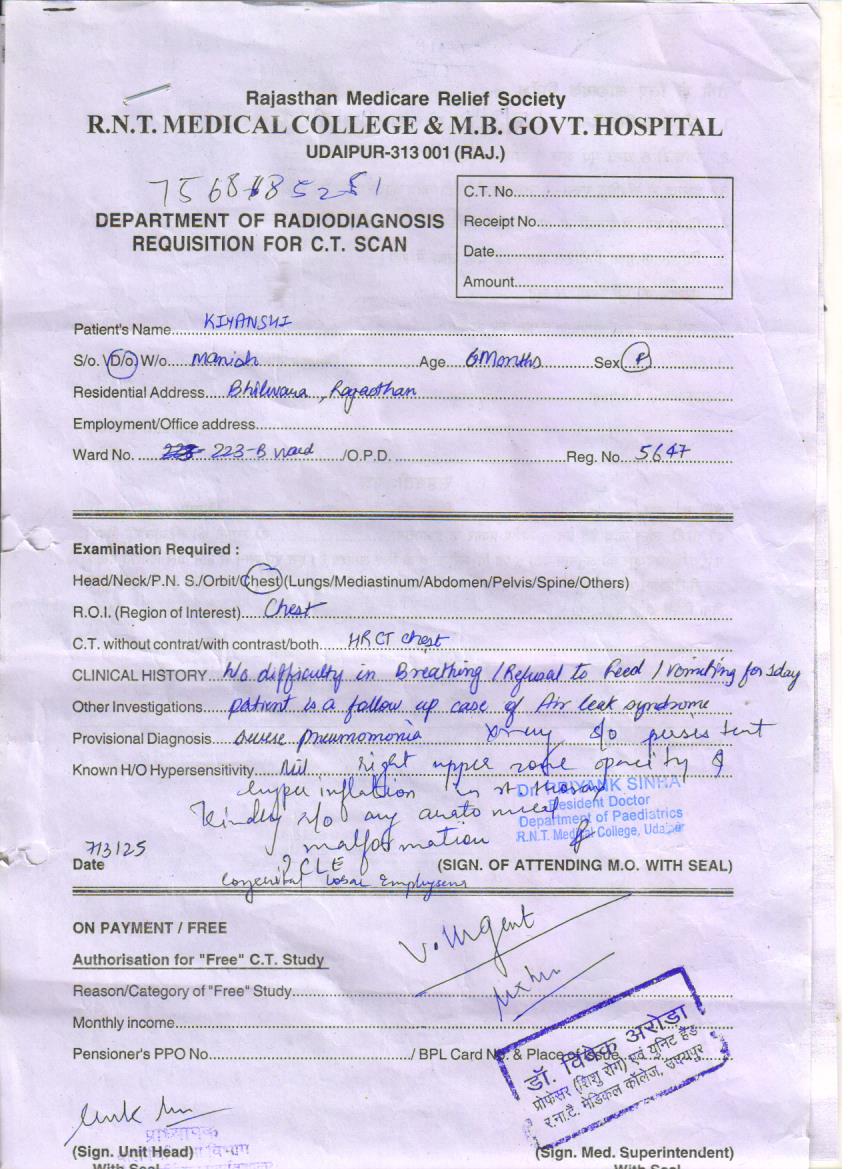 Rajasthan Medicare Relief Society
R.N.T. MEDICAL COLLEGE & M.B. GOVT. HOSPITAL
UDAIPUR-313 001 (RAJ.)
DEPARTMENT OF RADIODIAGNOSIS
REQUISITION FOR C.T. SCAN
C.T. No.
Receipt No.
Date
Amount
Patient's Name KIYANSHI
S/o. D/o. W/o. Manish Age 6 Months Sex F
Residential Address Bhilwara, Rajasthan
Employment/Office address
Ward No. 223-B Ward /O.P.D. Reg. No. 5647
Examination Required :
Head/Neck/P.N. S./Orbit/Chest (Lungs/Mediastinum/Abdomen/Pelvis/Spine/Others)
R.O.I. (Region of Interest) Chest
C.T. without contrat/with contrast/both HRCT chest
CLINICAL HISTORY H/o difficulty in Breathing / Refusal to Feed / Vomiting for 1day
Other Investigations patient is a follow up case of Air leak syndrome
Provisional Diagnosis severe pneumomonia Xray s/o persistent
Known H/O Hypersensitivity Nil right upper zone opacity &
hyper inflation in
Kindly r/o any anatomical
malformation
? CLE
Congenital Lobar
Dr. PRIYANK SINHA
Resident Doctor
Department of Paediatrics
R.N.T. Medical College, Udaipur
7/3/25
Date (SIGN. OF ATTENDING M.O. WITH SEAL)
ON PAYMENT / FREE
V. Urgent
Authorisation for "Free" C.T. Study
Reason/Category of "Free" Study
Monthly income
Pensioner's PPO No. / BPL Card No. & Place of Issue
डॉ. विवेक अरोडा
प्रोफेसर (शिशु रोग) एवं यूनिट हैड
र.ना.टै. मेडिकल कॉलेज, उदयपुर
प्राध्यापक
विभाग
(Sign. Unit Head) (Sign. Med. Superintendent)
With Seal With Seal